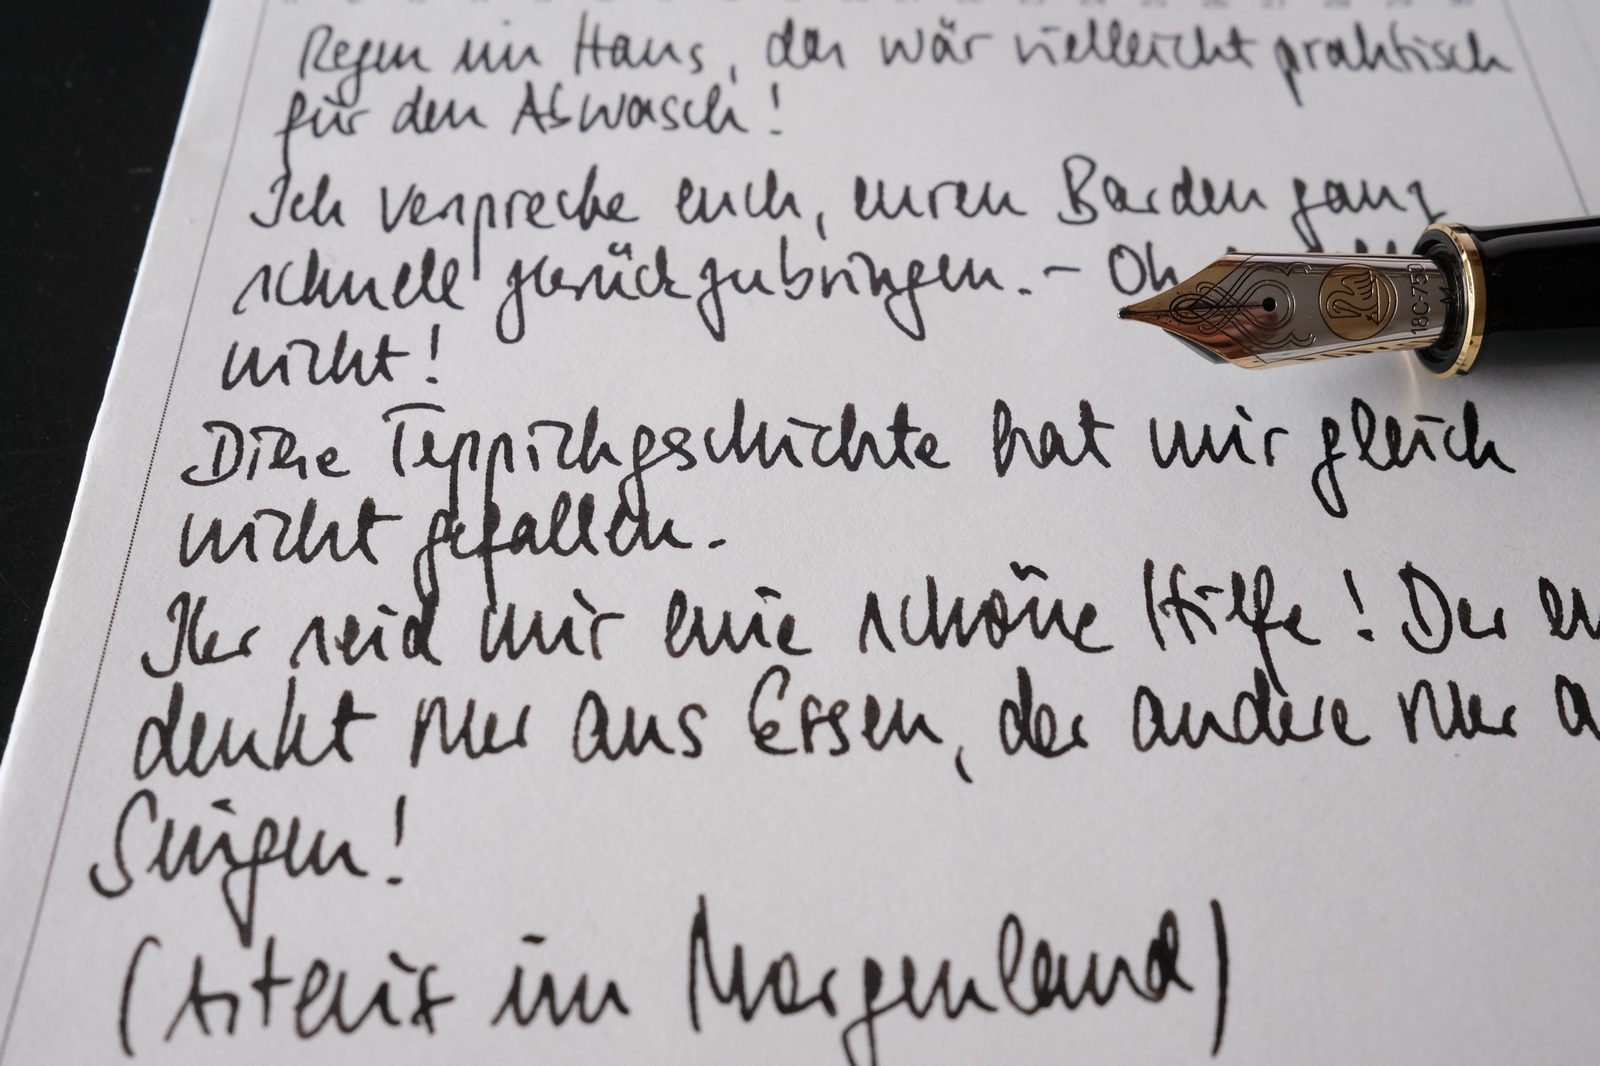 Regen im Haus, das wär vielleicht praktisch
für den Abwasch!
Ich verspreche euch, euren Barden ganz
schnell zurückzubringen. – Oh
nicht!
Diese Teppichgeschichte hat mir gleich
nicht gefallen.
Ihr seid mir eine schöne Hilfe! Der
denkt nur ans Essen, der andere nur
Singen!
(Asterix im Morgenland)
18C-750